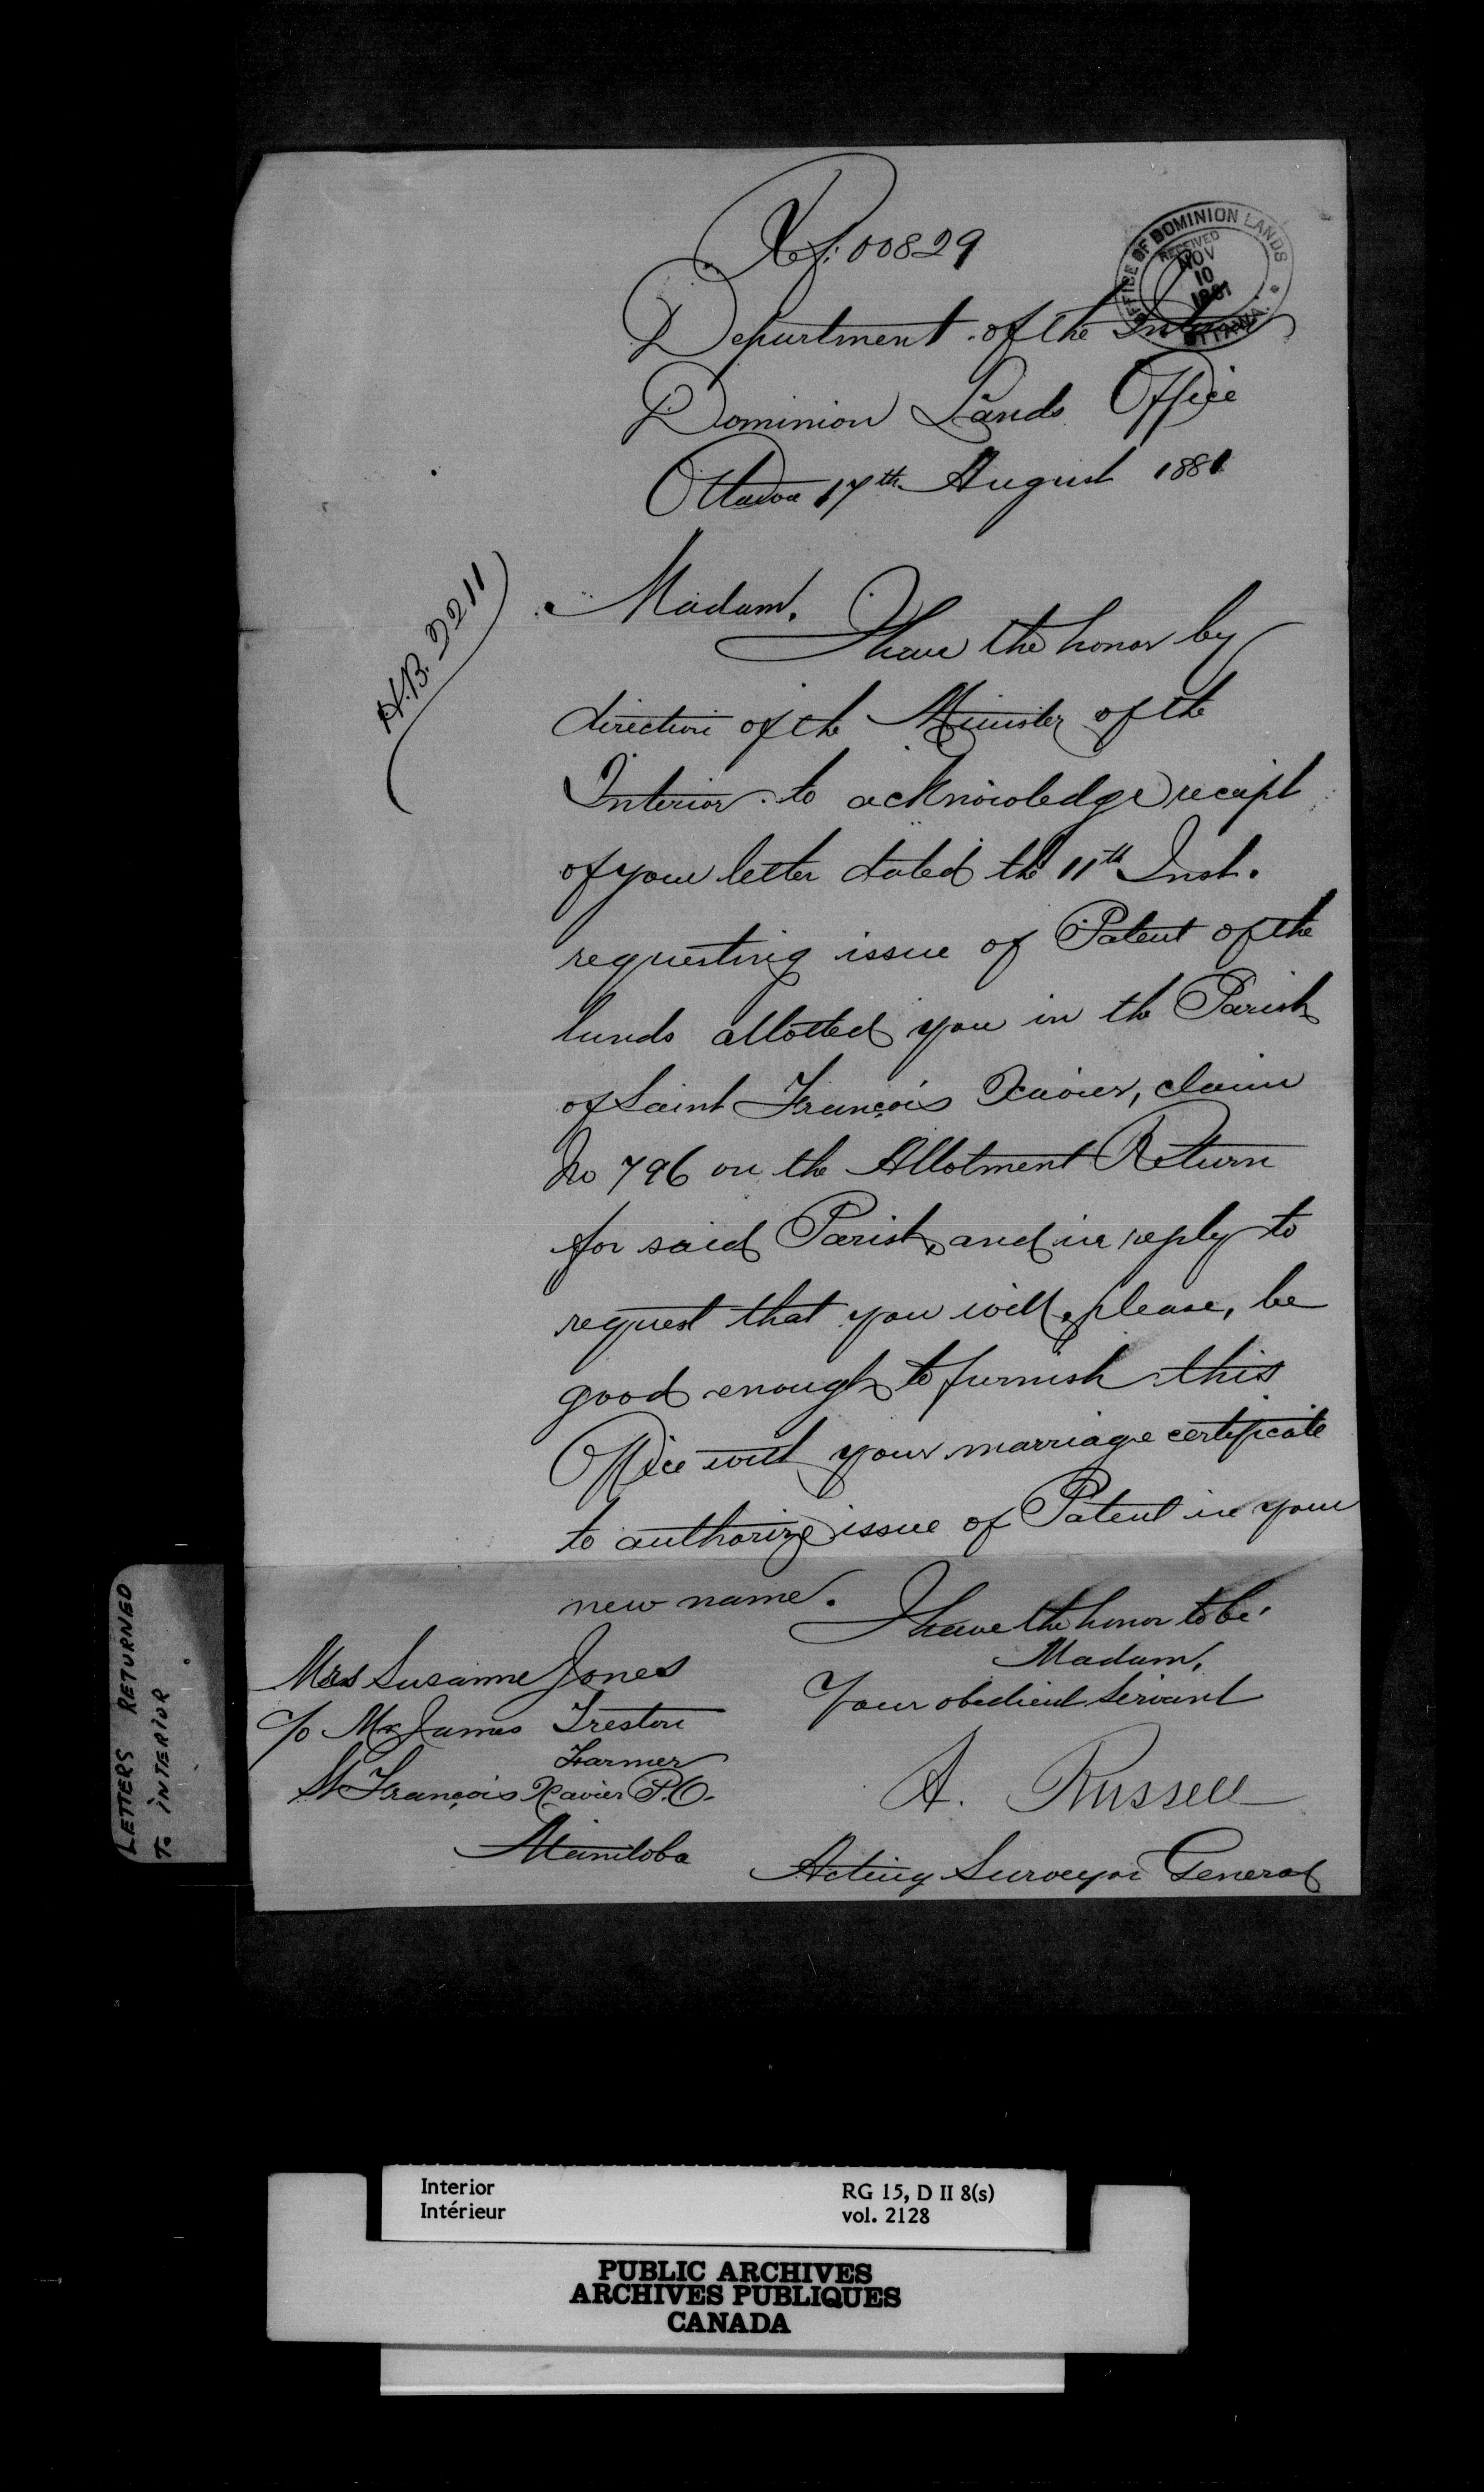 Ref: 00829
OFFICE OF DOMINION LANDS
RECEIVED
NOV
10
1881
OTTAWA.
Department of the Interior
Dominion Lands Office
Ottawa 17th August 1881
H.B. 2211
Madam,
I have the honor by
direction of the Minister of the
Interior to acknowledge receipt
of your letter dated the 11th Inst.
requesting issue of Patent of the
lands allotted you in the Parish
of Saint François Xavier, claim
No 796 on the Allotment Return
for said Parish, and in reply to
request that you will, please, be
good enough to furnish this
Office with your marriage certificate
to authorize issue of Patent in your
new name.
I have the honor to be
Madam,
Your obedient servant
A. Russell
Acting Surveyor General
Mrs Susanne Jones
c/o Mr James Treston
Farmer
St François Xavier P.O.
Manitoba
LETTERS RETURNED
To INTERIOR
Interior
Intérieur
RG 15, D II 8(s)
vol. 2128
PUBLIC ARCHIVES
ARCHIVES PUBLIQUES
CANADA